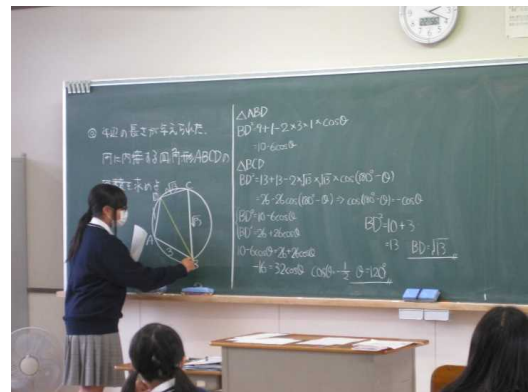 ③ 4辺の長さが与えられた、
円に内接する四角形ABCDの
面積を求めよ
√13
C
D
√13
A
3
B
△ABD
BD²=9+1-2×3×1×cosθ
=10-6cosθ
△BCD
BD²=13+13-2×√13×√13×cos(180°-θ)
=26-26cos(180°-θ) ⇒ cos(180°-θ)=-cosθ
BD²=10-6cosθ
BD²=26+26cosθ
10-6cosθ=26+26cosθ
-16=32cosθ cosθ=-1/2 θ=120°
BD²=10+3
=13 BD=√13